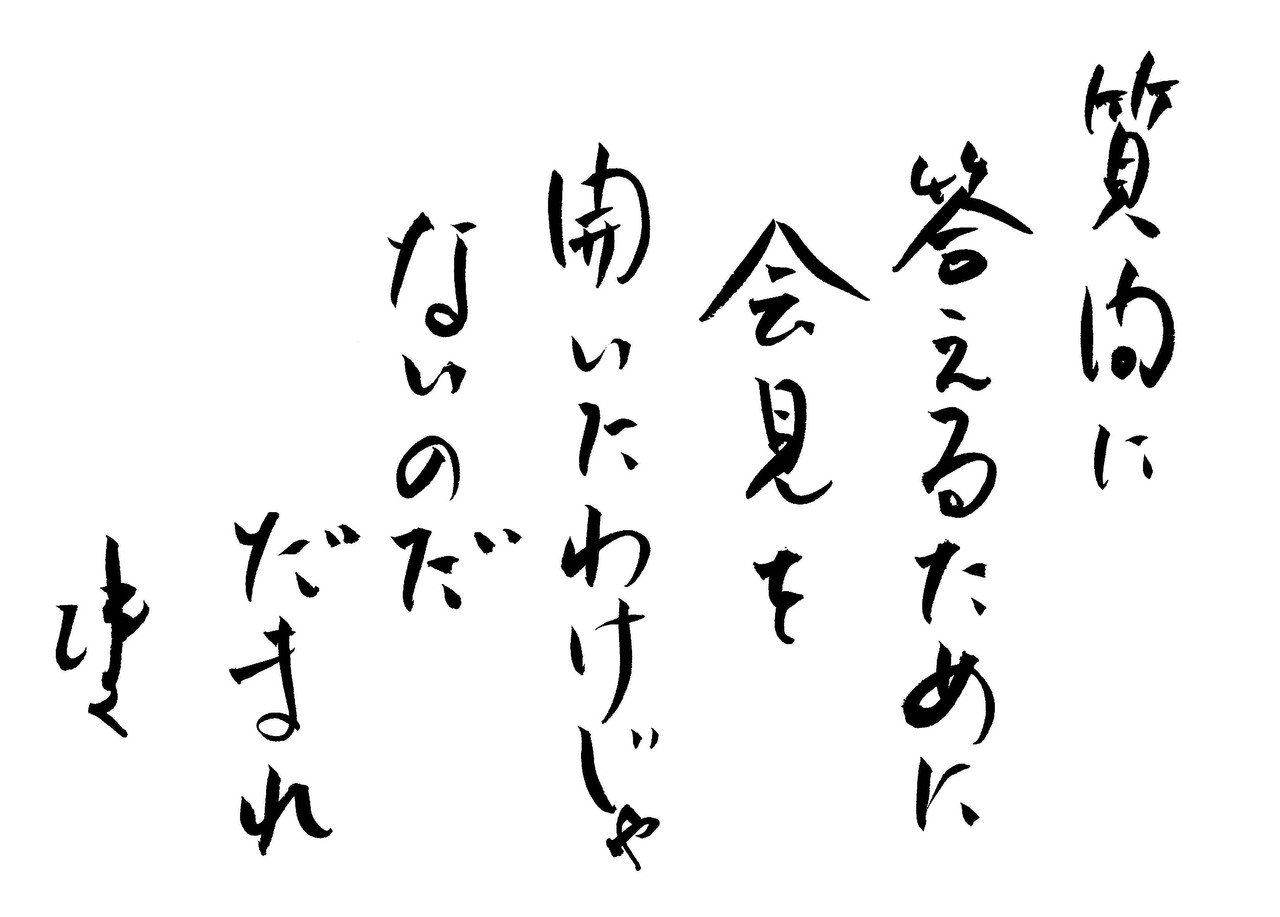 質問に
答えるために
会見を
開いたわけじゃ
ないのだ
だまれ